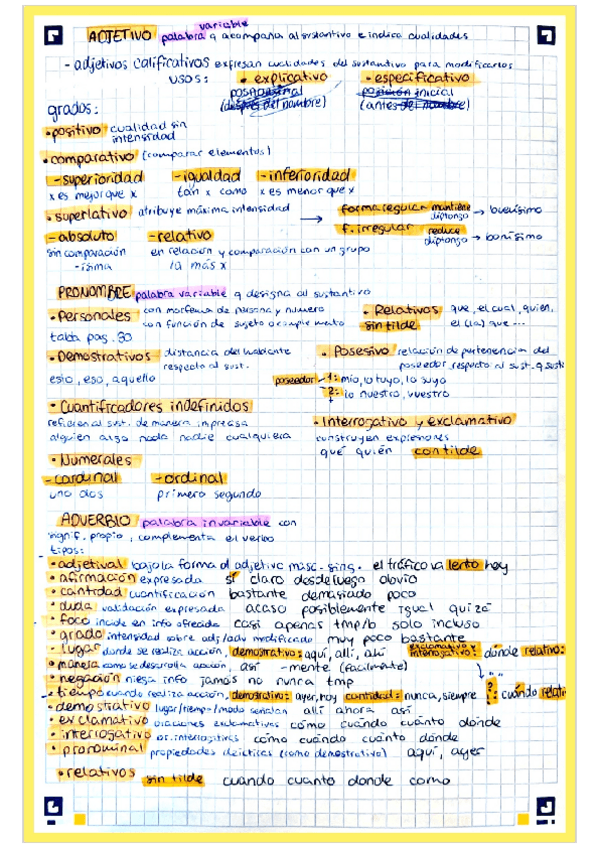 variable
ADJETIVO palabra q acompaña al sustantivo e indica cualidades
- adjetivos calificativos expresan cualidades del sustantivo para modificarlos
usos: • explicativo - especificativo
posición inicial
(después del nombre) (antes del nombre)
grados:
• positivo cualidad sin
intensidad
• comparativo (comparar elementos)
- superioridad - igualdad - inferioridad
x es mejor que x tan x como x es menor que x
• superlativo atribuye máxima intensidad → forma regular mantiene diptongo → buenísimo
- absoluto - relativo f. irregular reduce diptongo → bonísimo
sin comparación en relación y comparación con un grupo
-ísima la más x
PRONOMBRE palabra variable q designa al sustantivo
• Personales con morfema de persona y numero • Relativos que, el cual, quien,
con función de sujeto o complemento sin tilde el (la) que ...
tabla pag. 30
• Demostrativos distancia del hablante • Posesivo relación de pertenencia del
respecto al sust. poseedor respecto al sust. q susti
esto, eso, aquello poseedor - 1: mío, lo tuyo, lo suyo
2: lo nuestro, vuestro
• Cuantificadores indefinidos • Interrogativo y exclamativo
refieren al sust. de manera imprecisa construyen expresiones
alguien algo nada nadie cualquiera qué quién con tilde
• Numerales
- cardinal - ordinal
uno dos primero segundo
ADVERBIO palabra invariable con
signif. propio, complementa el verbo
tipos:
• adjetival bajo la forma d adjetivo masc. sing. el tráfico va lento hoy
• afirmación expresada sí claro desde luego obvio
• cantidad cuantificación bastante demasiado poco
• duda validación expresada acaso posiblemente igual quizá
• foco incide en info ofrecida casi apenas tmp/b solo incluso
• grado intensidad sobre adj/adv modificado muy poco bastante
• lugar donde se realiza acción, demostrativo: aquí, allí, ahí exclamativo y interrogativo: dónde relativo:
• manera como se desarrolla acción, así -mente (facilmente)
• negación niega info jamás no nunca tmp
• tiempo cuando realiza acción, demostrativo: ayer, hoy cantidad: nunca, siempre ?: cuándo relati
• demostrativo lugar/tiempo/modo señalan allí ahora así
• exclamativo oraciones exclamativas cómo cuándo cuánto dónde
• interrogativo or. interrogativas cómo cuándo cuánto dónde
• pronominal propiedades deícticas (como demostrativo) aquí, ayer
• relativos sin tilde cuando cuanto donde como